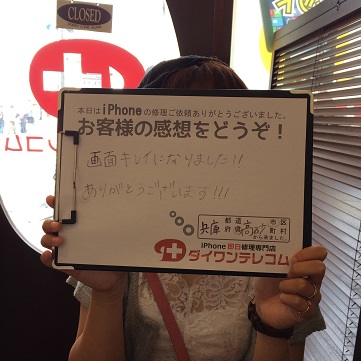 CLOSED
本日は iPhone の修理ご依頼ありがとうございました。
お客様の感想をどうぞ！
画面キレイになりました!!
ありがとうございます!!!
都道 市区
兵庫 府県 町村
から来ました。
iPhone 即日修理専門店
ダイワンテレコム